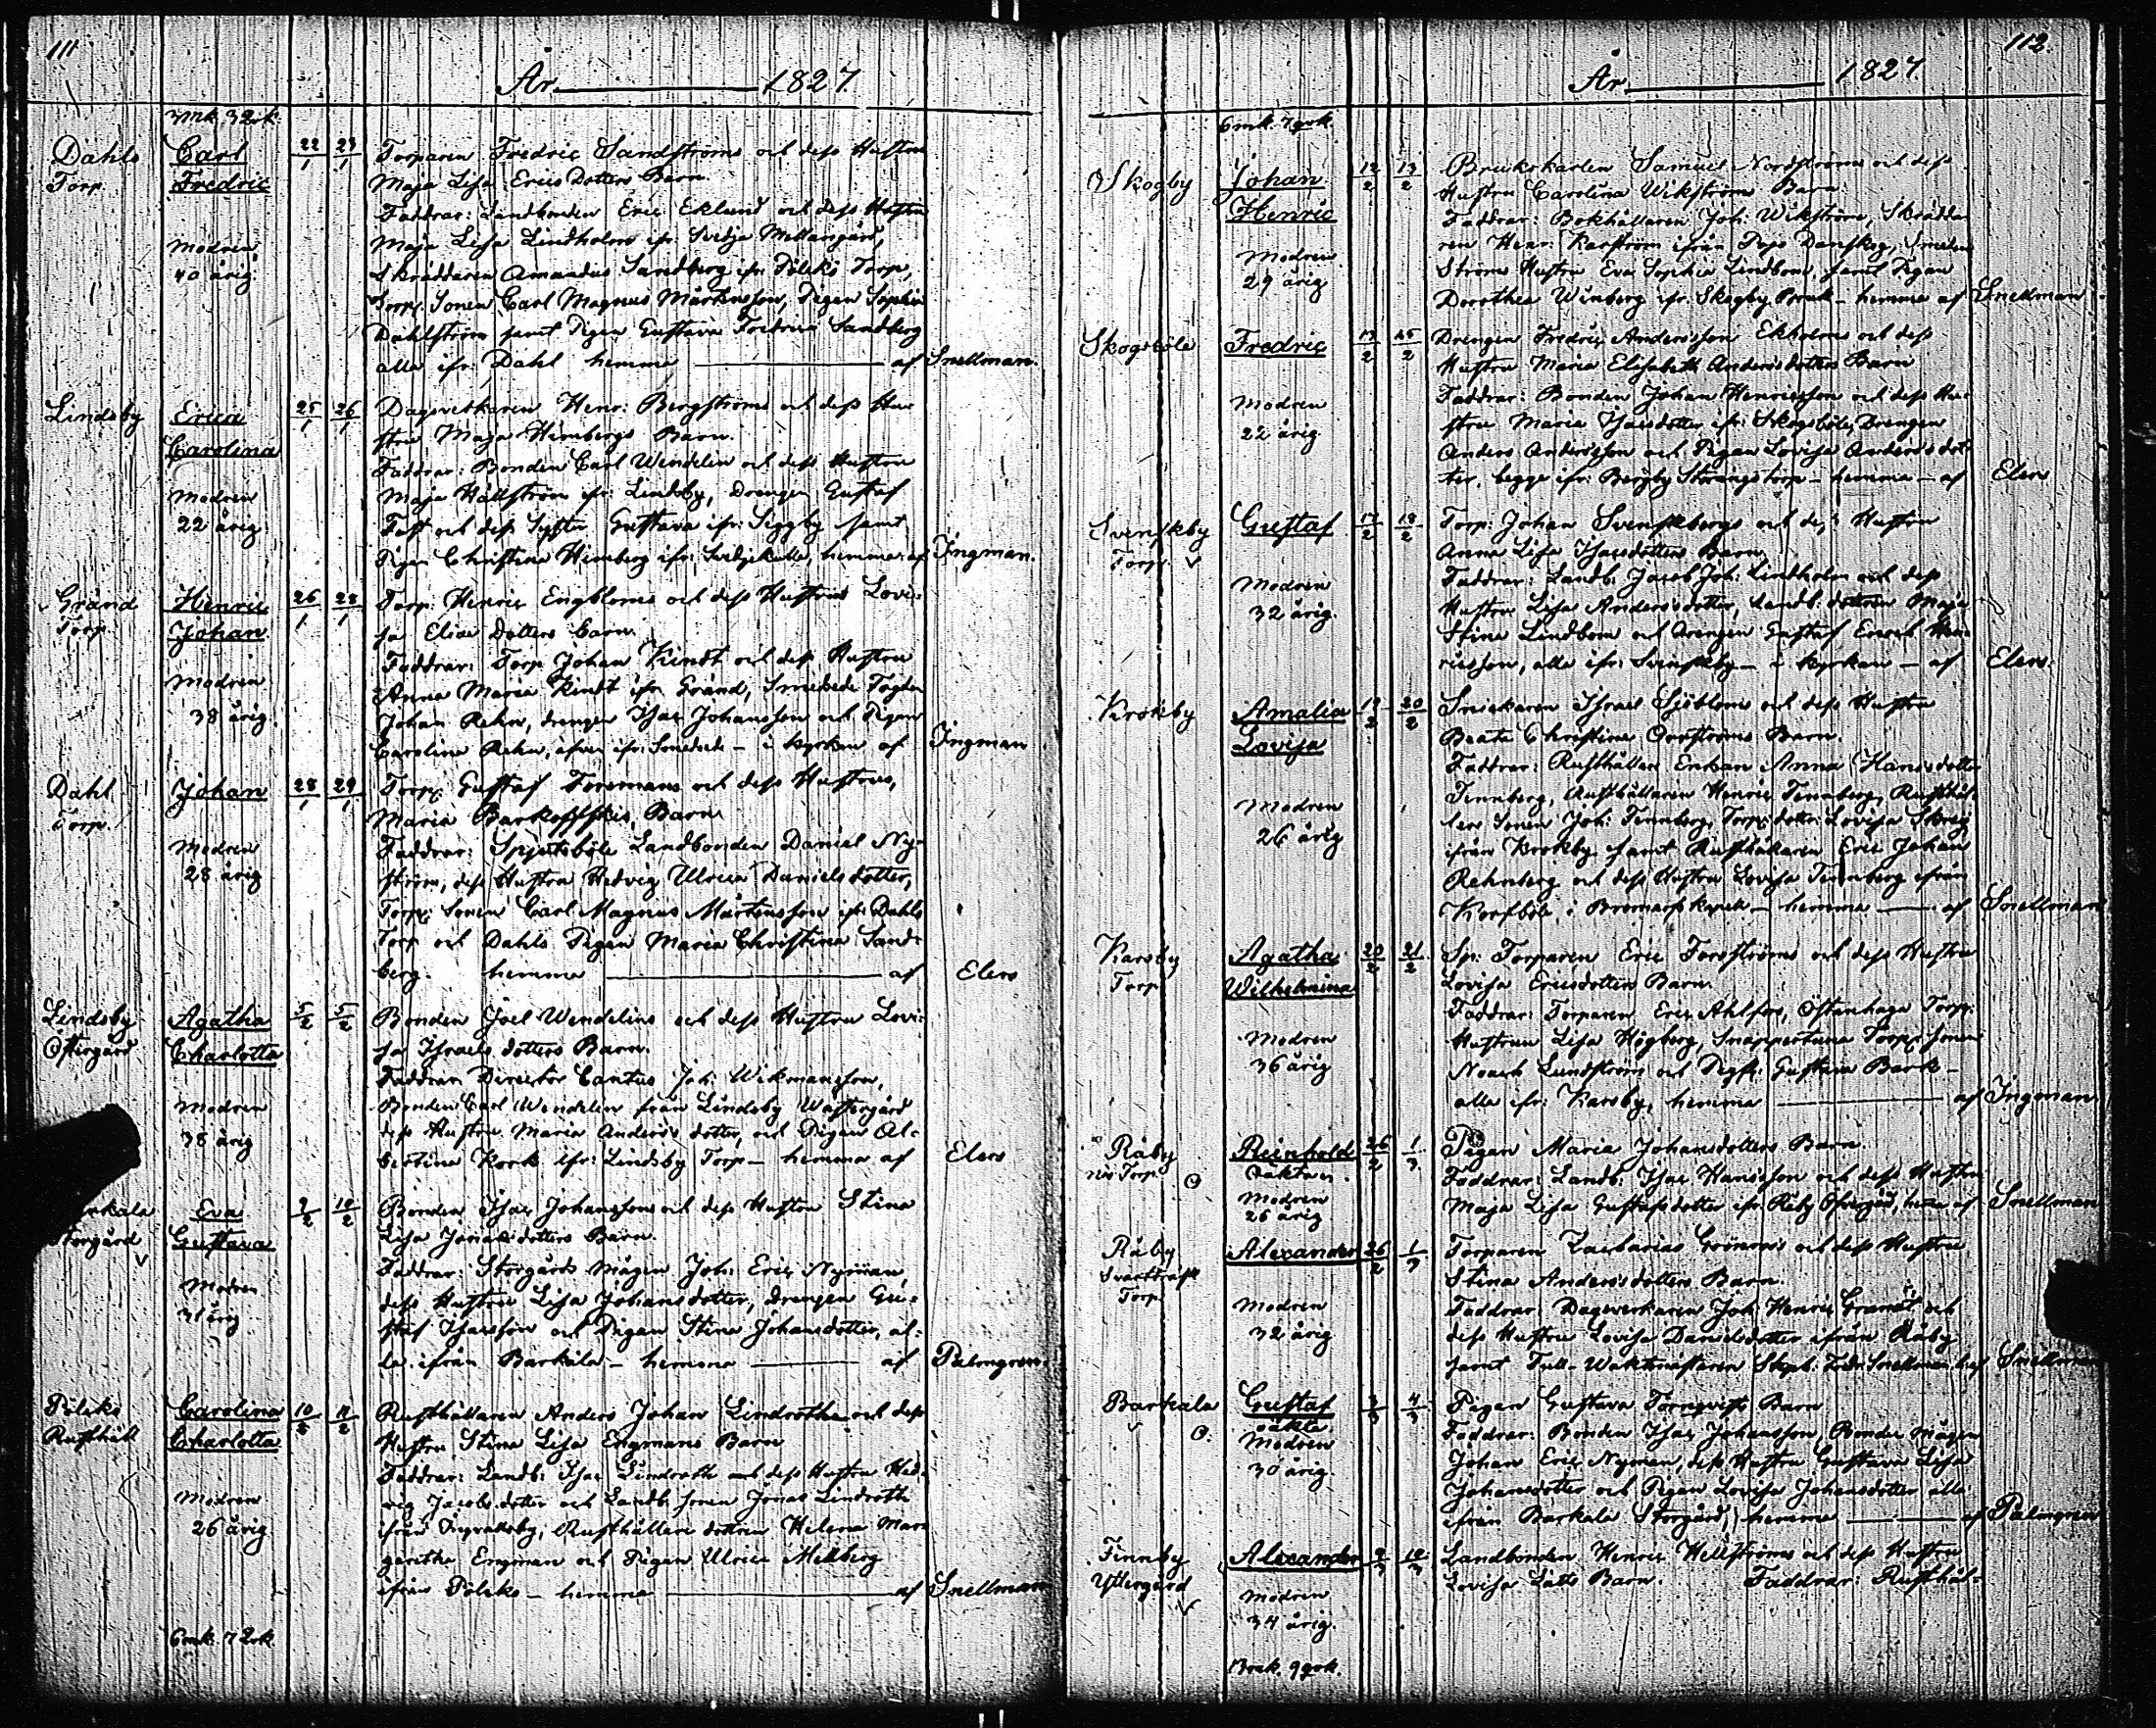 111
År 1827.
3mk. 32rk.
Dahls Carl 22/1 23/1 Torparen Fredric Sandströms och dess Hustru
Torp Fredric Maja Lisa Ericsdotters Barn.
Faddrar: Landbonden Eric Eklund och dess Hustru
Modren Maja Lisa Lindholm ifr: Mellangård,
40 årig. Skräddaren Amandus Sandberg ifr: Pöleks Torp,
Torp. Sonen Carl Magnus Mårtensson, Pigan Sophia
Dahlström samt Pigan Gustava Fredrica Sandberg
alla ifr: Dahl hemma af Snellman.
Lindsby Erica 25/1 26/1 Dagsverkaren Henr: Bergströms och dess Hu-
Carolina stru Maja Himbergs Barn.
Faddrar: Bonden Carl Wendelin och dess Hustru
Modren Maja Hällström ifr: Lindsby, Drengen Gustaf
22 årig och dess Syster Gustava ifr: Seggby samt
Pigan Christina Himberg ifr: hemma af Ingman.
Gränd Henric 26/1 28/1 Torp: Henric Engbloms och dess Hustrus Lovi-
Torp Johan sa Eliae Dotters Barn.
Faddrar: Torp. Johan Kindt och dess Hustru
Modren Anna Maria Kindt ifr: Gränd, Smedede Fogden
38 årig. Johan Rehn, drengen Isac Johansson och Pigan
Carolina Rehn, ifr: Smedede – i kyrkan af Ingman
Dahl Johan 28/1 29/1 Torp. Gustaf Forsmans och dess Hustrus,
Torp. Maria Barkoffskis, Barn.
Modren Faddrar: Spjutsböle Landbonden Daniel Ny-
28 årig ström, dess Hustru Hedvig Ulrica Danielsdotter,
Torp: Sonen Carl Magnus Mårtensson ifr: Dahls
Torp och Dahls Pigan Maria Christina Sand-
berg. hemma af Elers
Lindsby Agatha 5/2 5/2 Bonden Joel Wendelins och dess Hustru Lovi-
Östergård Charlotta sa Israelsdotters Barn.
Faddrar: Director Cantus Joh: Wikmansson,
Modren Bonden Carl Wendelin från Lindsby Wästergård
38 årig dess Hustru Maria Andersdotter, och Pigan Al-
bertina Kork ifr: Lindsby Torp – hemma af Elers
Eva 9/2 10/2 Bonden Isac Johanssons och dess Hustru Stina
Gustava Lisa Jonaedotters Barn.
Faddrar: Storgårds Mågen Joh: Eric Nyman,
Modren dess Hustru Lisa Johansdotter, Drengen Gu-
31 årig staf Isacsson och Pigan Stina Johansdotter, al-
la ifrån Barkala – hemma af Palmgren.
Pöleks Carolina 10/2 11/2 Rusthållaren Anders Johan Lindroths och dess
Rusthåll Charlotta Hustru Stina Lisa Engmans Barn
Faddrar: Landb: Isac Lindroth och dess Hustru Hed-
Modren vig Jacobsdotter och Landb. sonen Jonas Lindroth
26 årig ifrån Ingvalsby, Rusthållare dottren Helena Mar-
garetha Engman och Pigan Ulrica Mellberg
ifrån Pöleks – hemma af Snellman
6mk. 72rk.
112.
År 1827
6mk. 79rk.
Skogby Johan 12/2 13/2 Brukskarlen Samuel Nordströms och dess
Henric Hustru Carolina Wikströms Barn
Faddrar: Bokhållaren Joh: Wikström, Skrädda-
Modren ren Henr: Karström ifrån Pojo Danskog, Smeden
29 årig Ströms Hustru Eva Sophia Lindbom, samt Pigan
Dorothea Winberg ifr: Skogby Bruk – hemma af Snellman
Skogsböle Fredric 13/2 15/2 Drengen Fredric Andersson Ekholms och dess
Hustru Maria Elisabeth Andersdotters Barn
Modren Faddrar: Bonden Johan Henricsson och dess Hu-
22 årig. stru Maria Isacsdotter ifr: Skogsböle, Drengen
Anders Andersson och Pigan Lovisa Andersdot-
ter, begge ifr: Bergby Storängstorp – hemma – af Elers
Svenskby Gustaf 17/2 18/2 Torp: Johan Svenskbergs och dess Hustru
Torp Anna Lisa Isacsdotters Barn.
Modren Faddrar: Landb. Jacob Joh: Lindholm och dess
32 årig. Hustru Lisa Andersdotter, Landb: dottren Maja
Stina Lindbom och Drengen Gustaf Henr-
ricsson, alla ifr: Svenskby – i kyrkan – af Elers.
Krokby Amalia 19/2 20/2 Snickaren Israel Sjöbloms och dess Hustru
Lovisa Beata Christina Öströms Barn.
Faddrar: Rusthållare Enkan Anna Hansdotter
Modren Tennberg, Rusthållaren Henric Tennberg, Rusthål-
26 årig lare Sonen Joh: Tennberg, Torp: dotter Lovisa
ifrån Krokby samt Rusthållaren Eric Johan
Rehnberg och dess Hustru Lovisa Tennberg ifrån
Korsböle i Bromarf Kapell – hemma af Snellman
Karsby Agatha 20/2 21/2 Sp: Torparen Eric Forsströms och dess Hustru
Torp Wilhelmina Lovisa Ericsdotters Barn.
Faddrar: Torparen Eric Ahlfors, Östanhaga Torp.
Modren Hustrun Lisa Högberg, Snappertuna Torp. sonen
36 årig Noach Lundström och Gustava Bark –
alla ifr: Karsby, hemma af Ingman
Råby Reinhold 26/2 1/3 Pigan Maria Johansdotters Barn.
Torp oäkta Faddrar: Landb: Isac Hansson och dess Hustru
Modren Maja Lisa Gustafsdotter ifr: Råby Öfvergård, af Snellman
26 årig
Råby Alexander 26/2 1/3 Torparen Zacharias Grönroos och dess Hustru
Svartträsk Stina Andersdotters Barn.
Torp Modren Faddrar: Dagsverkaren Joh: Henric Granat och
32 årig dess Hustru Lovisa Danielsdotter ifrån Råby
samt Tull-Waktmästaren Fredr: Snellman, af Snellman
Barkala Gustaf 3/3 4/3 Pigan Gustava Törnqvists Barn
oäkta. Faddrar: Bonden Isac Johansson, Bonde Mågen
Modren Johan Eric Nyman, dess Hustru Gustava Lisa
30 årig. Johansdotter och Pigan Lovisa Johansdotter alla
ifrån Barkala Storgård, hemma af Palmgren
Finnby Alexander 9/3 10/3 Landbonden Henric Hellströms och dess Hustru
Yttergård Modren Lovisa Lätts Barn. Faddrar: Rusthål-
34 årig.
13mk. 99rk.